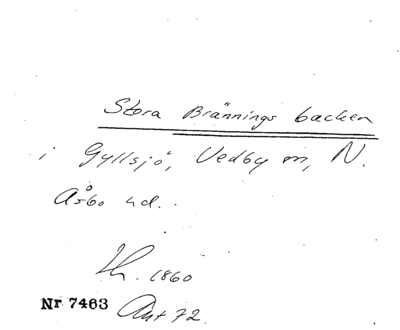 Stora Brännings backen
i Gyllsjö, Vedby sn, N.
Åsbo hd.
Lh. 1860
Nr 7463 Ant 72.